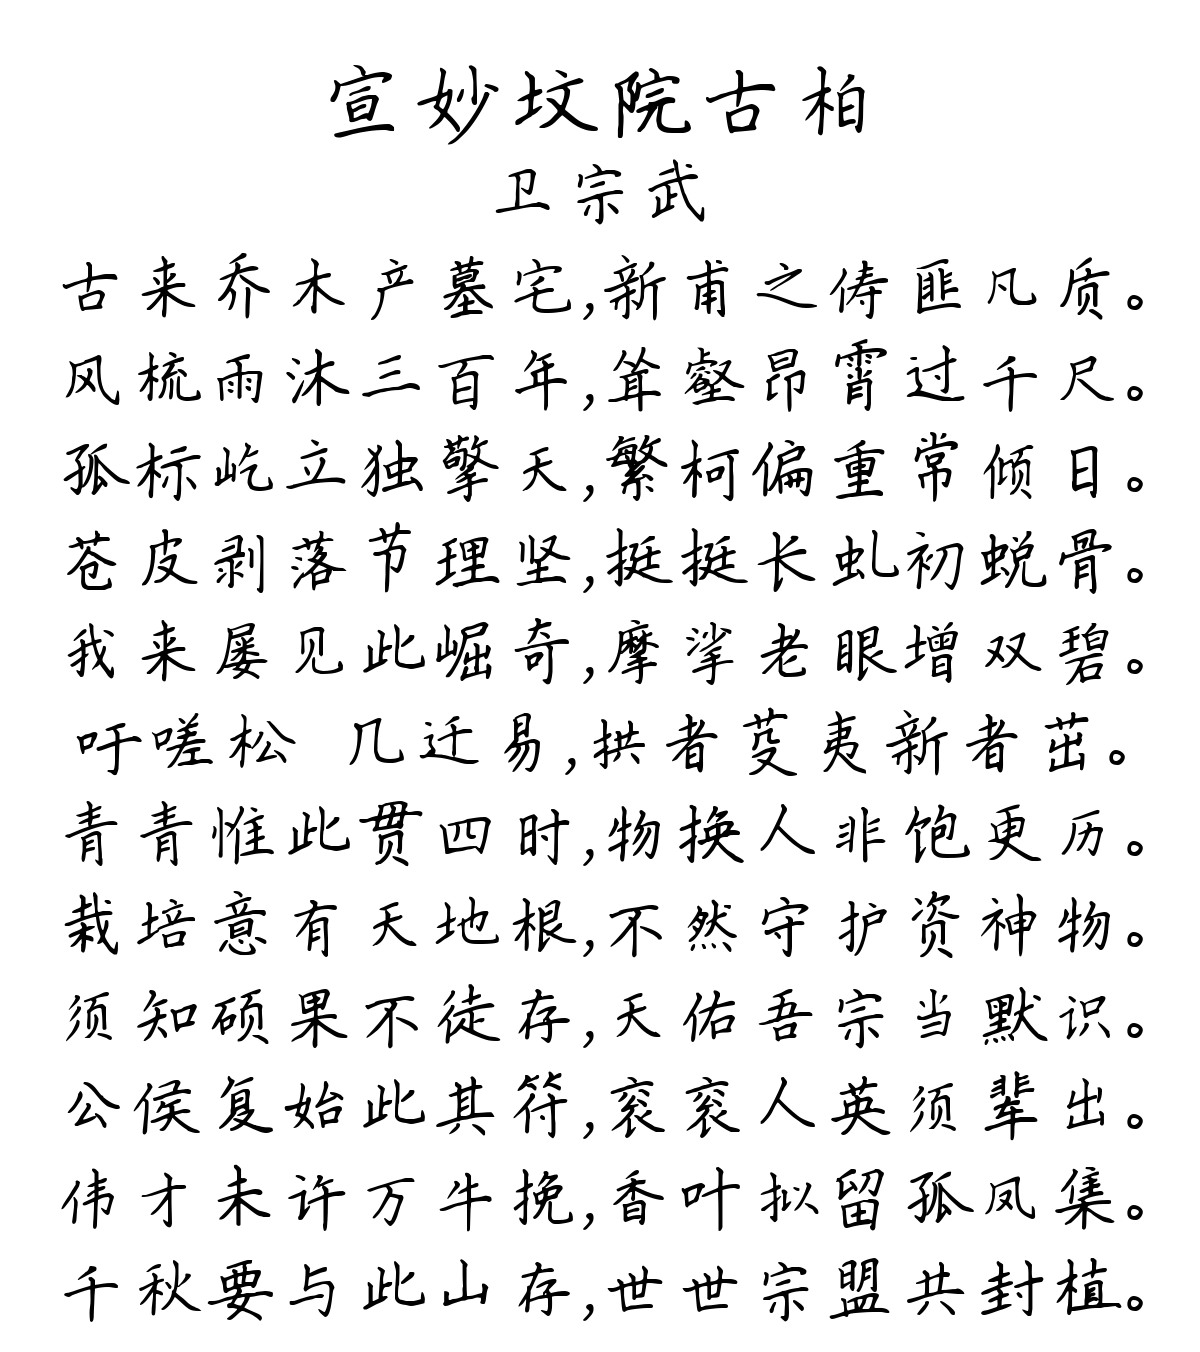 宣妙坟院古柏
卫宗武
古来乔木产墓宅,新甫之俦匪凡质。
风梳雨沐三百年,耸壑昂霄过千尺。
孤标屹立独擎天,繁柯偏重常倾日。
苍皮剥落节理坚,挺挺长虬初蜕骨。
我来屡见此崛奇,摩挲老眼增双碧。
吁嗟松 几迁易,拱者芟夷新者茁。
青青惟此贯四时,物换人非饱更历。
栽培意有天地根,不然守护资神物。
须知硕果不徒存,天佑吾宗当默识。
公侯复始此其符,衮衮人英须辈出。
伟才未许万牛挽,香叶拟留孤凤集。
千秋要与此山存,世世宗盟共封植。